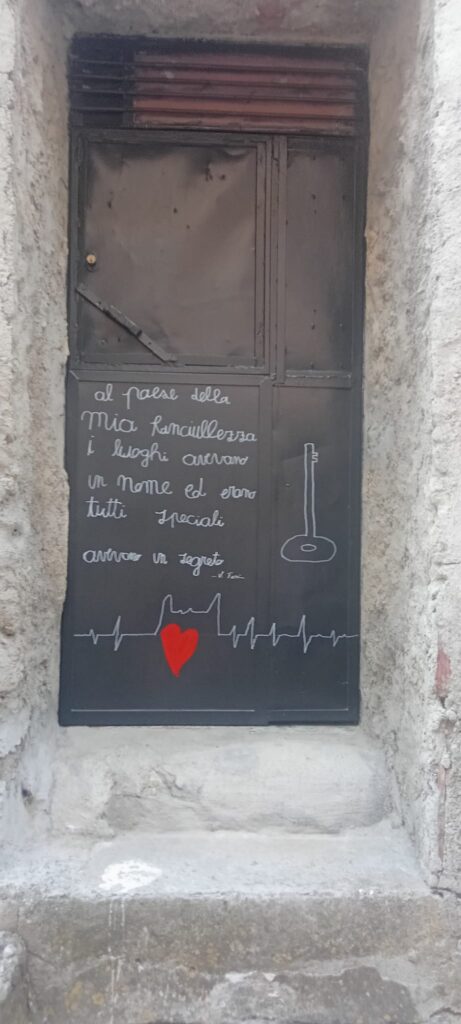 al paese della
mia fanciullezza
i luoghi avevano
un nome ed erano
tutti speciali
avevano un segreto